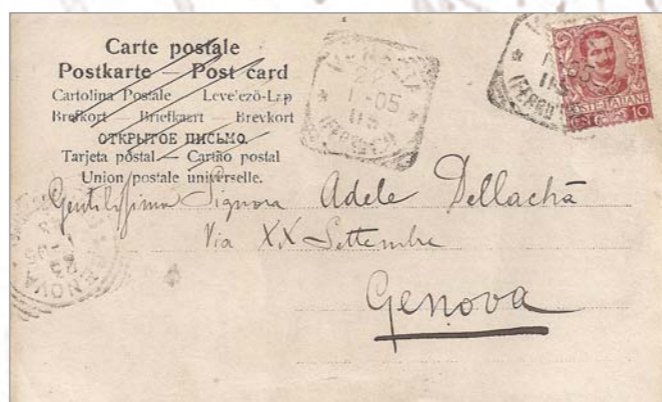 Carte postale
Postkarte — Post card
Cartolina Postale — Levelező-Lap
Brefkort — Briefkaart — Brevkort
ОТКРЫТОЕ ПИСЬМО.
Tarjeta postal — Cartão postal
Union postale universelle.
22
1-05
11S
(FERROVIA)
POSTE ITALIANE
10
Gentilissima Signora Adele Dellachà
Via XX Settembre
Genova
GENOVA
23